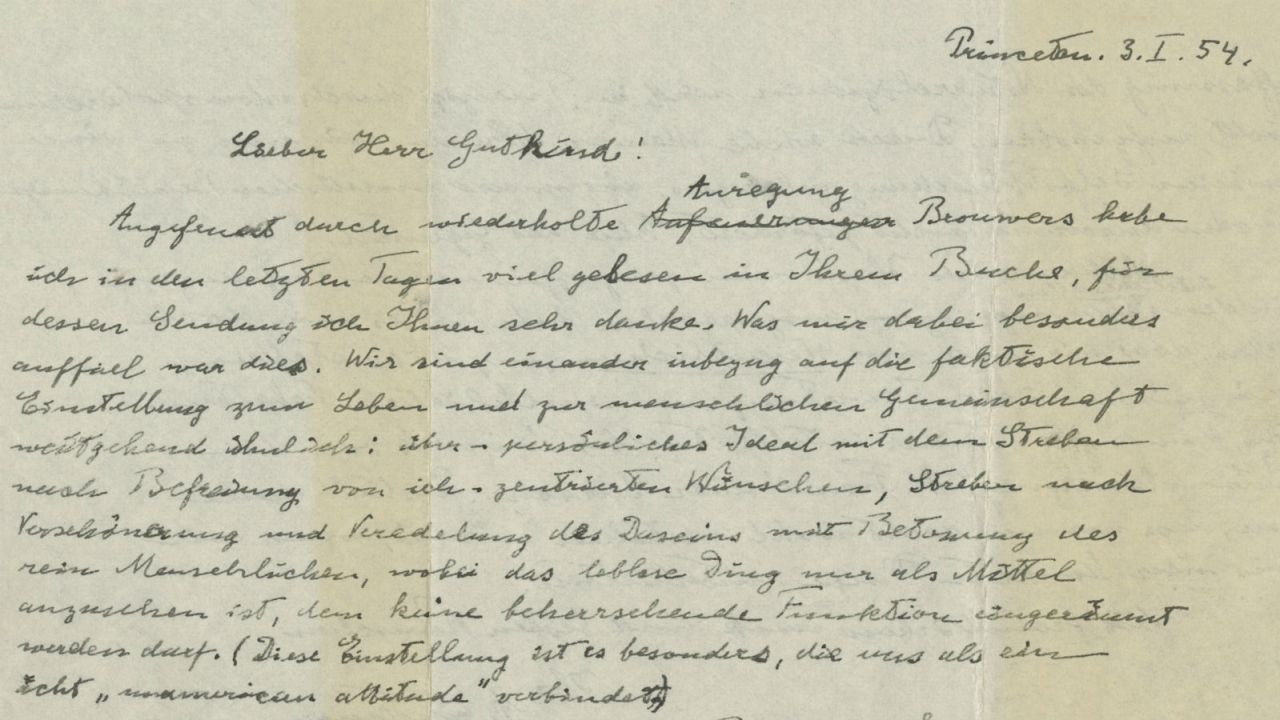 Princeton. 3. I. 54.
Lieber Herr Gutkind!
Anregung
Angefeuert durch wiederholte Anfeuerungen Brouwers habe
ich in den letzten Tagen viel gelesen in Ihrem Buche, für
dessen Sendung ich Ihnen sehr danke. Was mir dabei besonders
auffiel war dies. Wir sind einander inbezug auf die faktische
Einstellung zum Leben und zur menschlichen Gemeinschaft
weitgehend ähnlich: über-persönliches Ideal mit dem Streben
nach Befreiung von ich-zentrierten Wünschen, Streben nach
Verschönerung und Veredelung des Daseins mit Betonung des
rein Menschlichen, wobei das leblose Ding nur als Mittel
anzusehen ist, dem keine beherrschende Funktion eingeräumt
werden darf. (Diese Einstellung ist es besonders, die uns als ein
echt „unamerican attitude" verbindet)